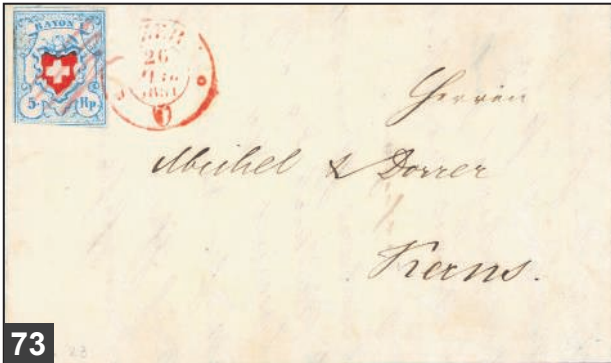 RAYON I
5 Rp
26
1851
Herren
Michel & Dorrer
Kerns.
73